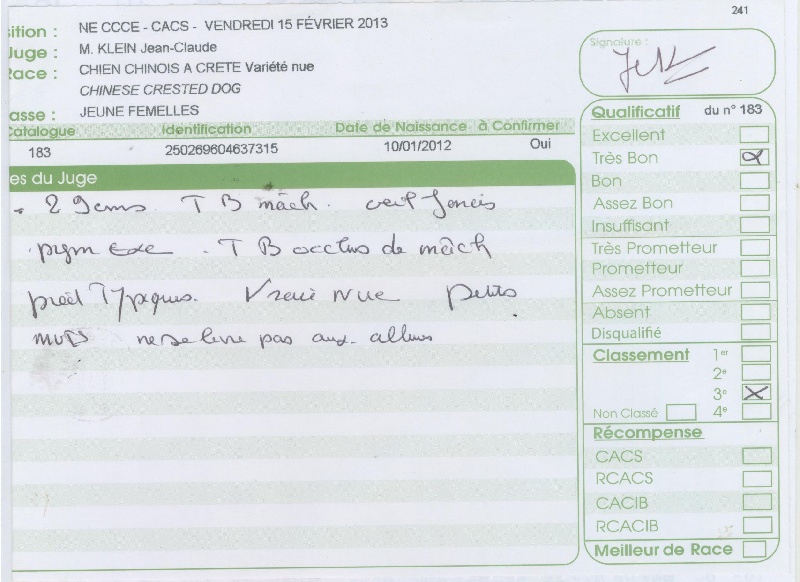 241
sition : NE CCCE - CACS - VENDREDI 15 FÉVRIER 2013
Juge : M. KLEIN Jean-Claude
Race : CHIEN CHINOIS A CRETE Variété nue
CHINESE CRESTED DOG
asse : JEUNE FEMELLES
Catalogue Identification Date de Naissance à Confirmer
183 250269604637315 10/01/2012 Oui
es du Juge
T B mâch. oeil foncé
pigm exc. T B occlus de mâch
pied Typiques. Vraie Nue petits
ne se livre pas aux allures
Signature :
Qualificatif du n° 183
Excellent
Très Bon
Bon
Assez Bon
Insuffisant
Très Prometteur
Prometteur
Assez Prometteur
Absent
Disqualifié
Classement 1er
2e
3e X
Non Classé 4e
Récompense
CACS
RCACS
CACIB
RCACIB
Meilleur de Race